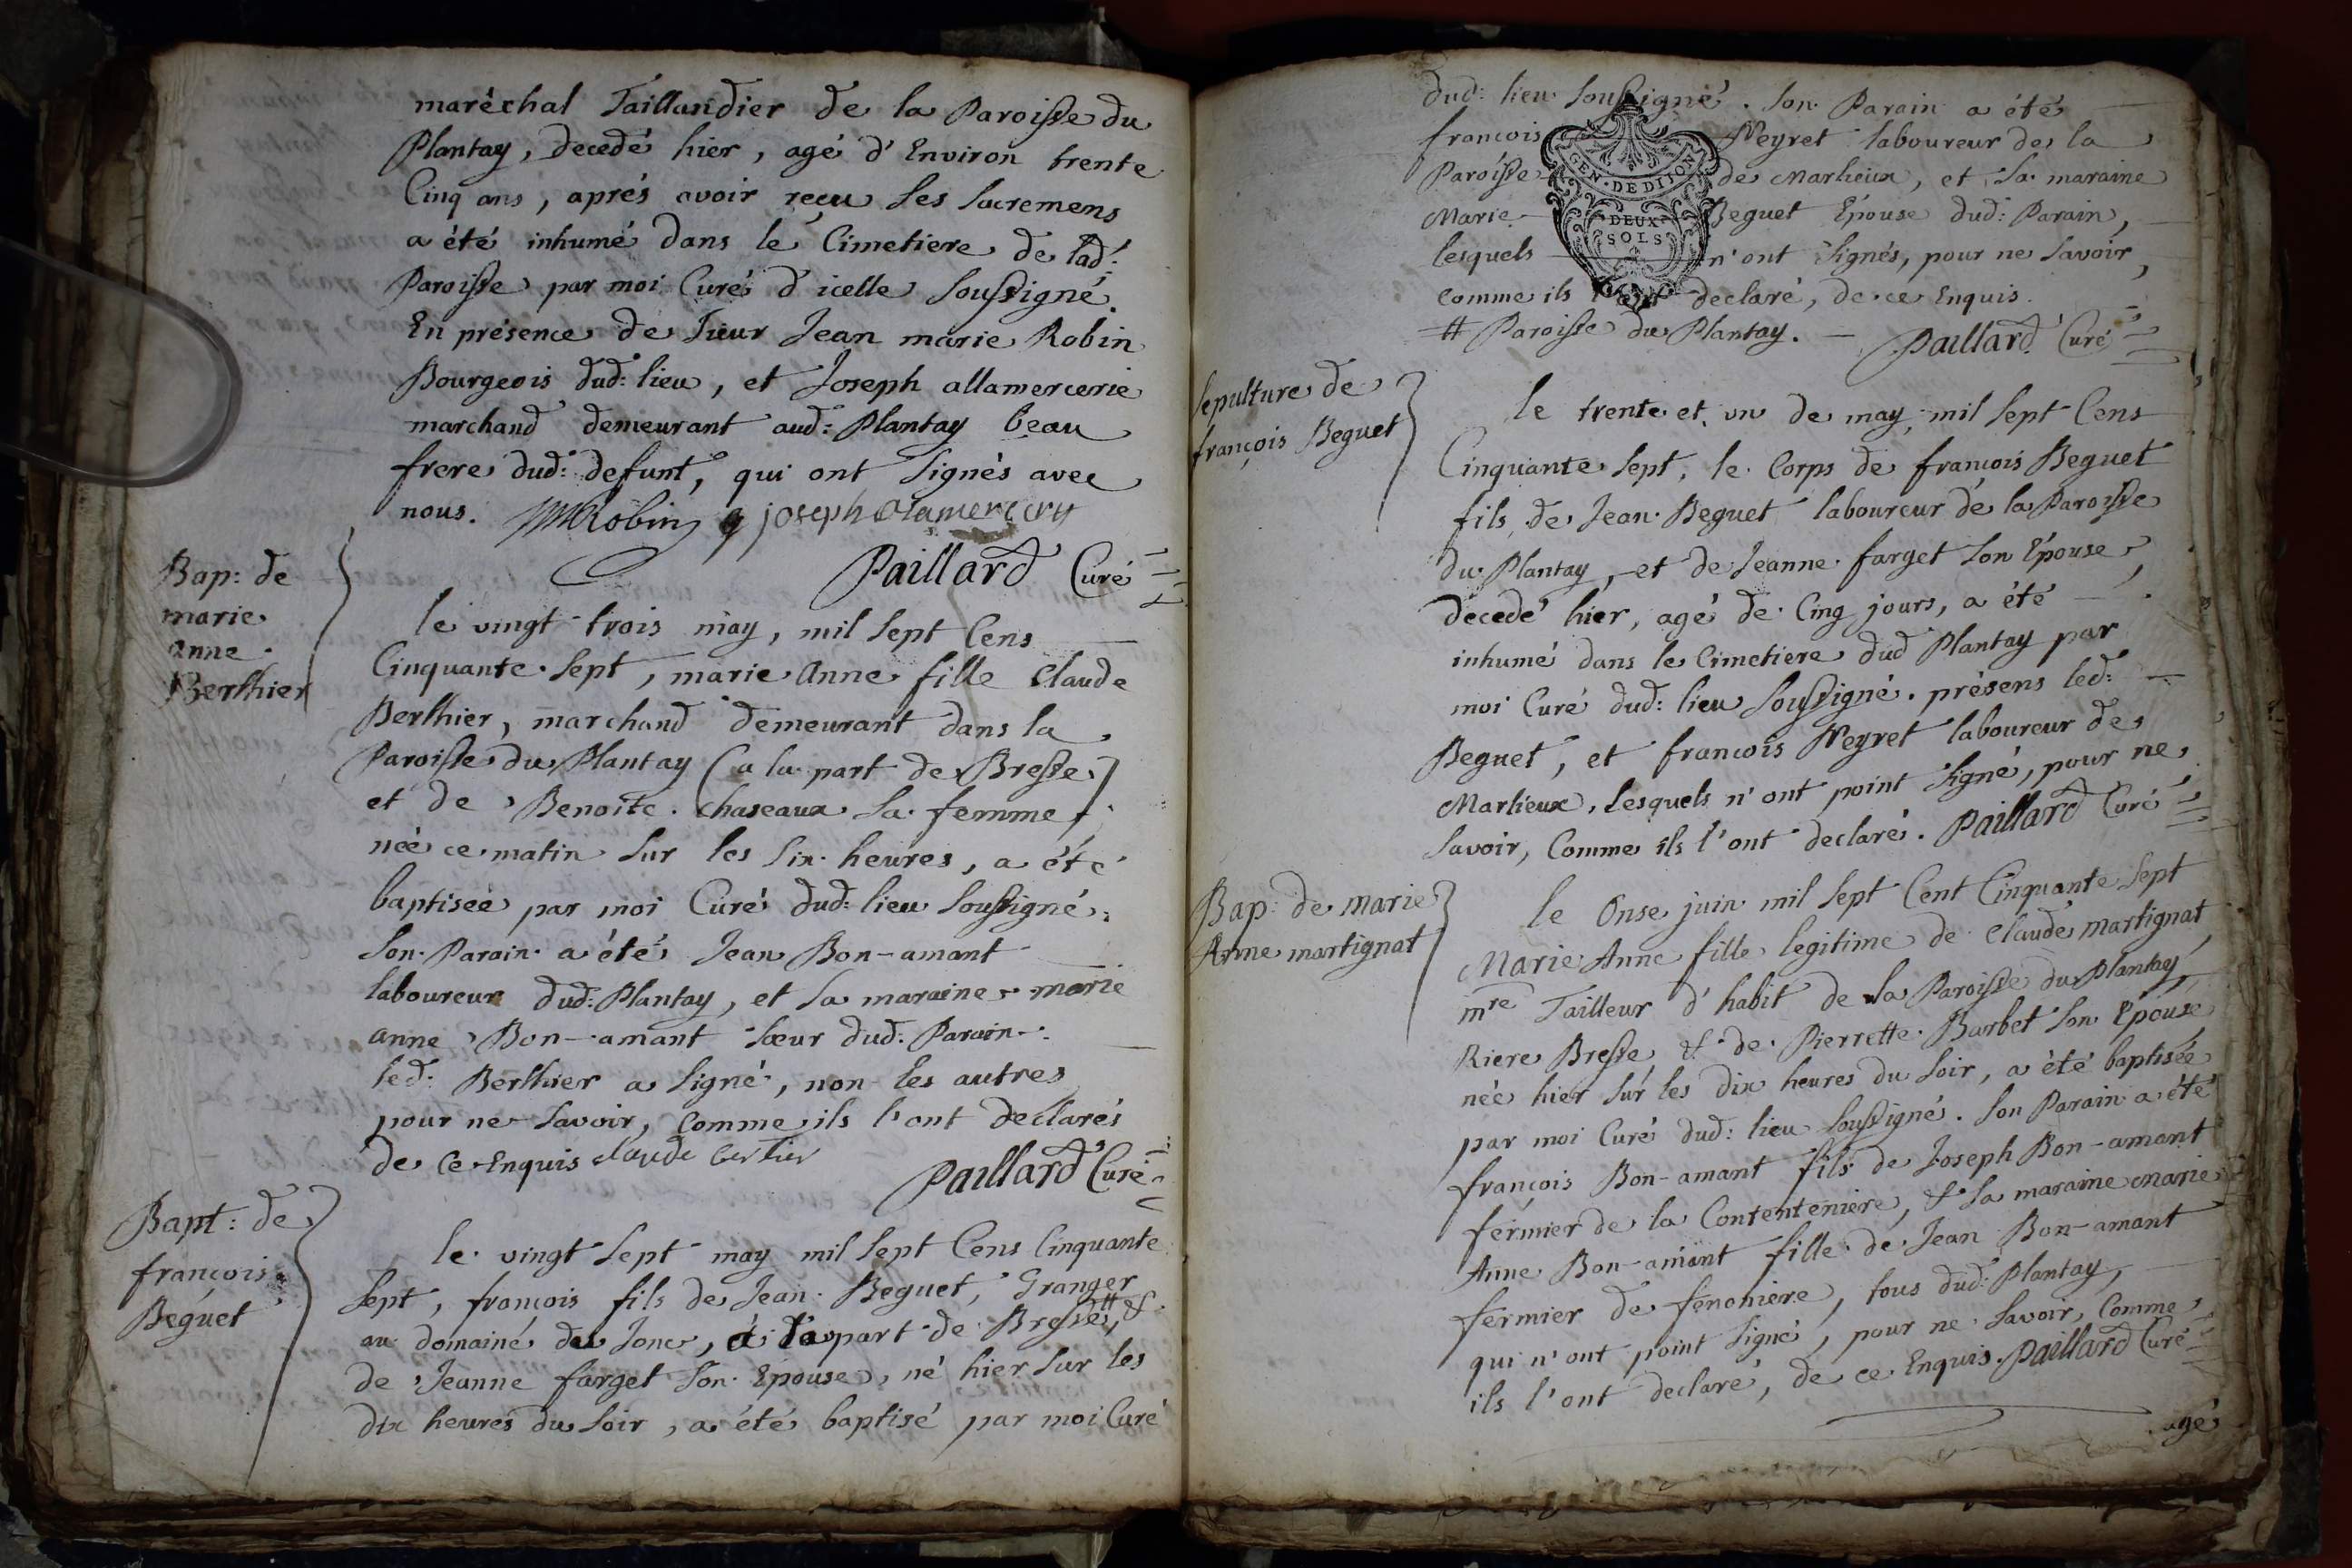 maréchal Taillandier de la Paroisse du
Plantay, decedé hier, agé d'Environ trente
Cinq ans, aprés avoir reçu ses sacremens
a été inhumé dans le Cimetiere de lad:
Paroisse par moi Curé d'icelle soussigné.
En présence de Sieur Jean marie Robin
Bourgeois dud: lieu, et Joseph allamercerie
marchand demeurant aud: Plantay beau
frere dud: defunt, qui ont signés avec
nous. JMRobin joseph alamercery
Paillard Curé
Bap: de
marie
anne
Berthier
le vingt-trois may, mil sept Cens
Cinquante-sept, marie Anne fille Claude
Berthier, marchand demeurant dans la
Paroisse du Plantay (a la part de Bresse)
et de Benoite Chaseaux sa femme,
née ce matin sur les six heures, a été
baptisée par moi Curé dud: lieu soussigné.
son Parain a été Jean Bon-amant
laboureur dud: Plantay, et sa maraine marie
anne Bon-amant sœur dud: Parain.
led: Berthier a signé, non les autres
pour ne savoir, comme ils l'ont declarés
de ce Enquis claude bertier
Paillard Curé
Bapt: de
françois
Beguet
le vingt sept may mil sept Cens Cinquante
sept, françois fils de Jean Beguet, Granger
au domaine du Jonc, à la part de Bresse, # &
de Jeanne farget son Epouse, né hier sur les
dix heures du soir, a été baptisé par moi Curé
dud: lieu soussigné. son Parain a été
françois Neyret laboureur de la
Paroisse de Marlieux, et sa maraine
Marie Beguet Epouse dud: Parain,
lesquels n'ont signés, pour ne savoir,
comme ils l'ont declaré, de ce Enquis.
# Paroisse du Plantay. — Paillard Curé
GEN. DE DIJON
DEUX
SOLS
sepulture de
françois Beguet
le trente et un de may, mil sept Cens
Cinquante sept, le Corps de françois Beguet
fils de Jean Beguet laboureur de la Paroisse
du Plantay, et de Jeanne farget son Epouse,
decedé hier, agé de Cinq jours, a été
inhumé dans le Cimetiere dud Plantay par
moi Curé dud: lieu soussigné. présens led:
Beguet, et françois Neyret laboureur de
Marlieux, lesquels n'ont point signé, pour ne
savoir, Comme ils l'ont declaré. Paillard Curé
Bap: de Marie
Anne martignat
le Onse juin mil sept Cent Cinquante sept
Marie Anne fille legitime de Claude martignat
mre Tailleur d'habit de la Paroisse du Plantay,
Riere Bresse, & de Pierrette Barbet son Epouse
née hier sur les dix heures du soir, a été baptisée
par moi Curé dud: lieu soussigné. son Parain a été
françois Bon-amant fils de Joseph Bon-amant
fermier de la Contenteniere, & sa maraine marie
Anne Bon-amant fille de Jean Bon-amant
fermier de fenoniere, tous dud: Plantay,
qui n'ont point signé, pour ne savoir, Comme
ils l'ont declaré, de ce Enquis. Paillard Curé
agé